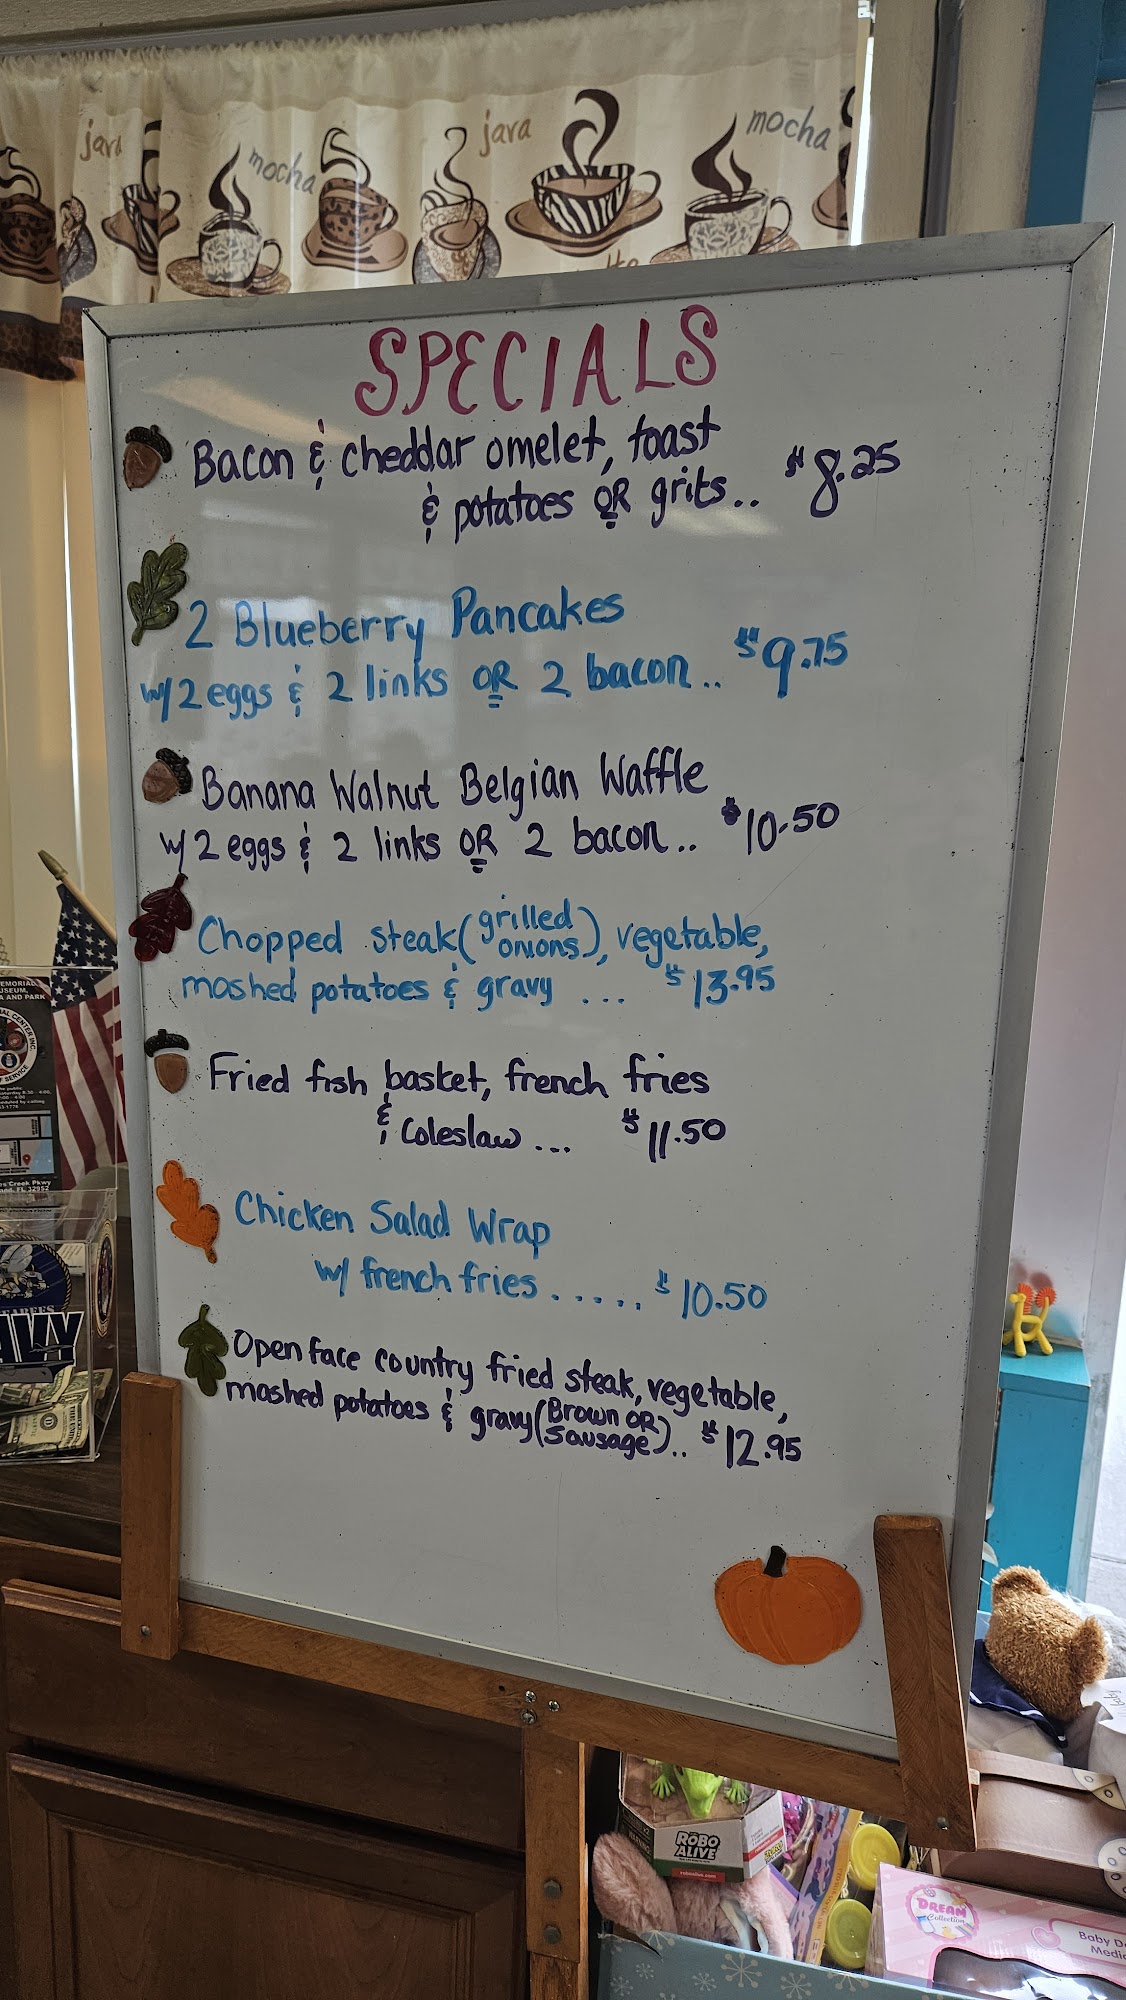 java
mocha
java
mocha
SPECIALS
Bacon & cheddar omelet, toast
& potatoes OR grits.. $8.25
2 Blueberry Pancakes
w/ 2 eggs & 2 links OR 2 bacon.. $9.75
Banana Walnut Belgian Waffle
w/ 2 eggs & 2 links OR 2 bacon.. $10.50
Chopped steak (grilled onions), vegetable,
mashed potatoes & gravy ... $13.95
Fried fish basket, french fries
& Coleslaw ... $11.50
Chicken Salad Wrap
w/ french fries ..... $10.50
Open face country fried steak, vegetable,
mashed potatoes & gravy (Brown OR Sausage).. $12.95
EMORIAL
USEUM,
A AND PARK
OF SERVICE
es Creek Pkwy
FL 32952
ROBO
ALIVE
DREAM
Collection
Baby
Medic